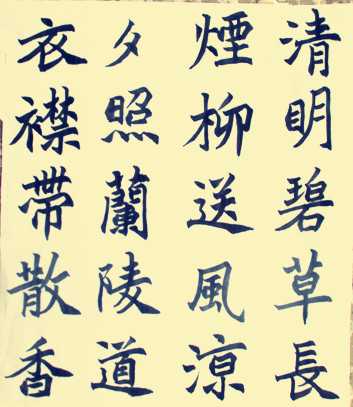 清明碧草長
煙柳送風涼
夕照蘭陵道
衣襟帶散香